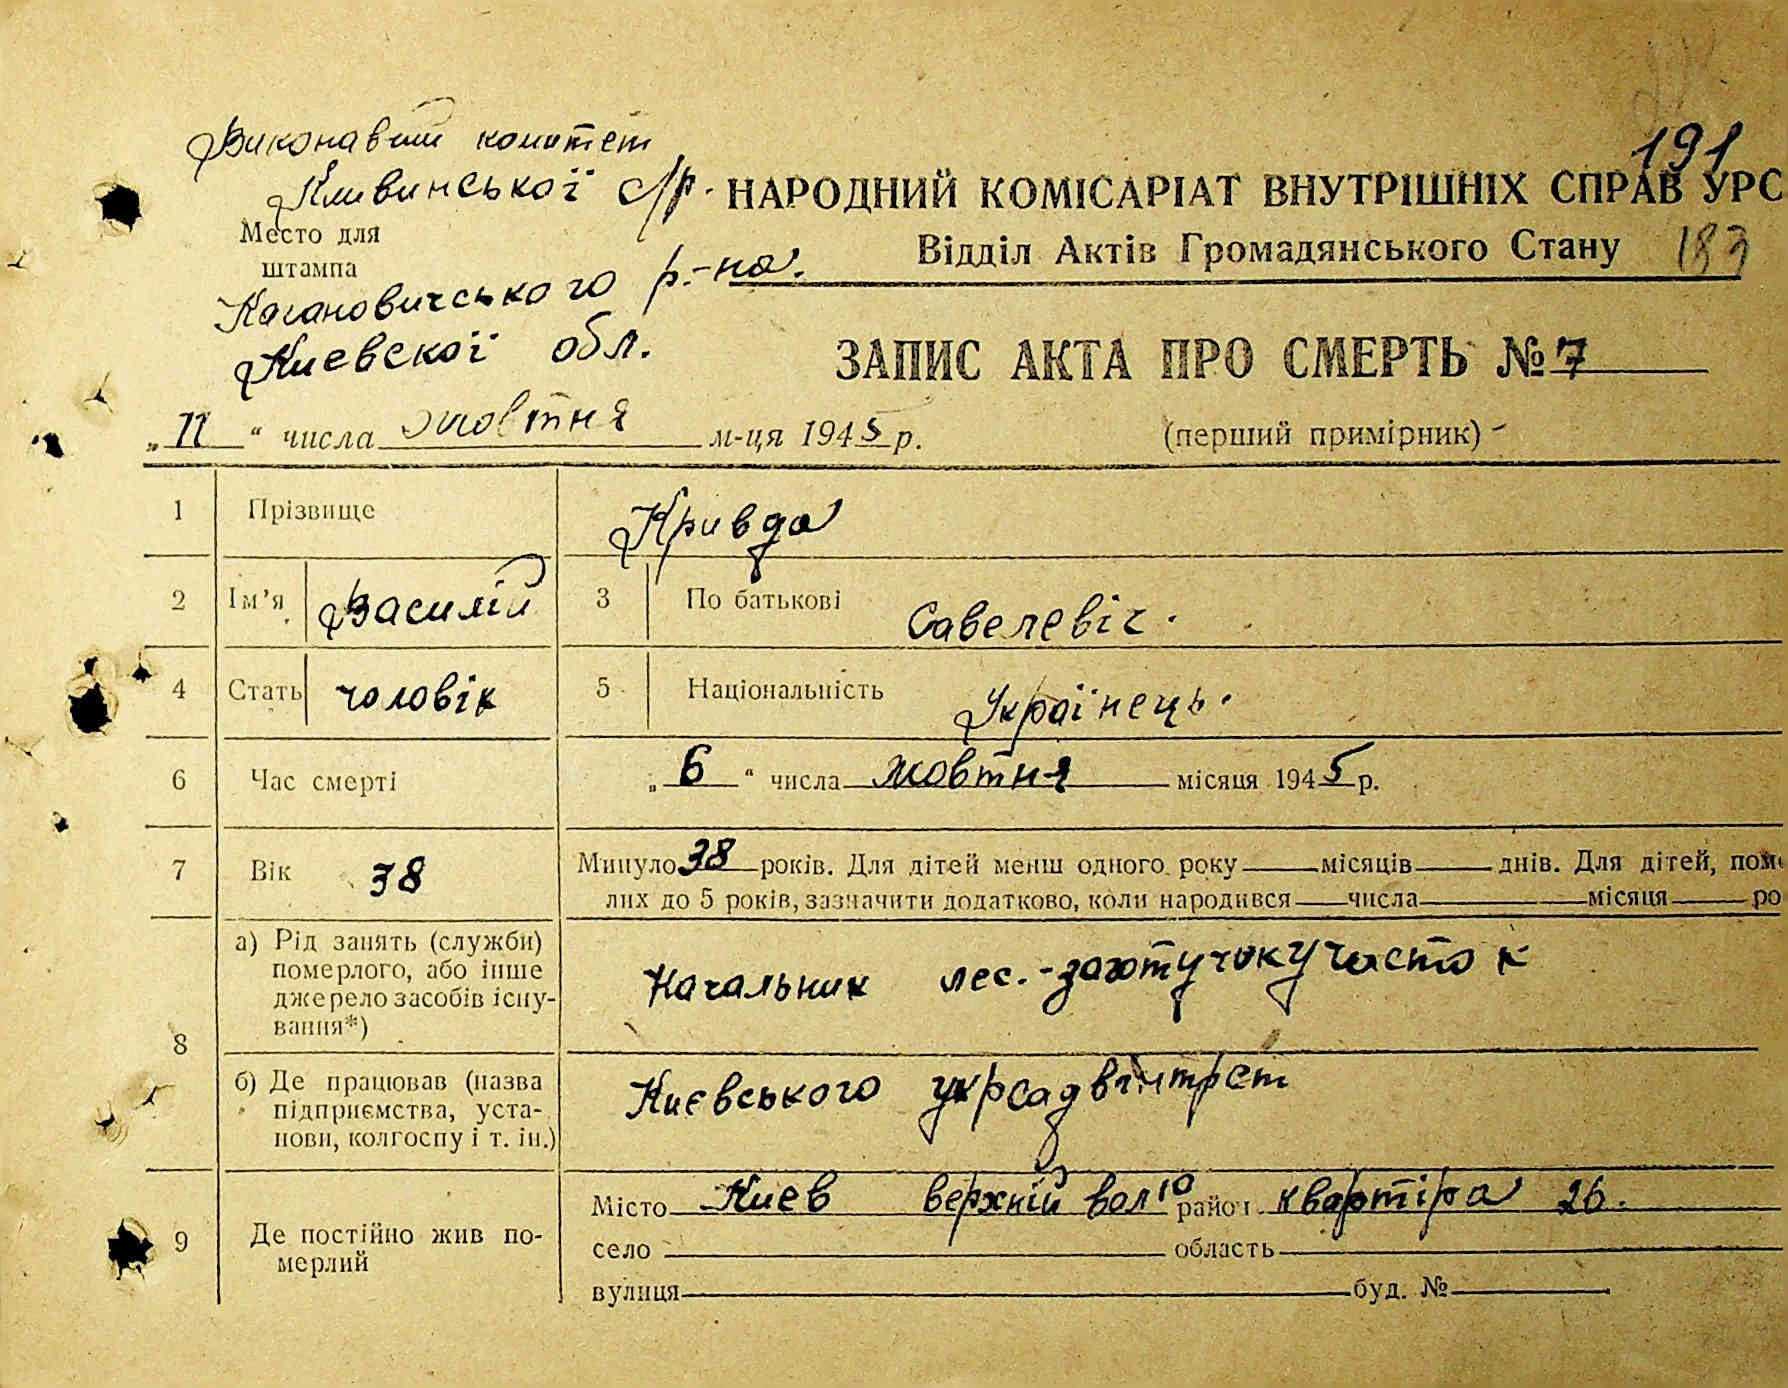 191
Виконавчий комитет
Кливинської с/р.
НАРОДНИЙ КОМІСАРІАТ ВНУТРІШНІХ СПРАВ УРС
Место для
штампа
Відділ Актів Громадянського Стану 183
Кагановичського р-на.
Киевскої обл.
ЗАПИС АКТА ПРО СМЕРТЬ № 7
„11“ числа жовтня м-ця 1945 р.
(перший примірник)
1 Прізвище Кривда
2 Ім’я Василій 3 По батькові Савелевіч.
4 Стать чоловік 5 Національність Українець.
6 Час смерті „6“ числа жовтня місяця 1945 р.
7 Вік 38 Минуло 38 років. Для дітей менш одного року місяців днів. Для дітей, поме
лих до 5 років, зазначити додатково, коли народився числа місяця ро
8 а) Рід занять (служби)
померлого, або інше
джерело засобів існу-
вання*)
Начальник лес.-
б) Де працював (назва
підприємства, уста-
нови, колгоспу і т. ін.)
Києвського
9 Де постійно жив по-
мерлий
Місто Киев верхній вал 10 район квартіра 26.
село область
вулиця буд. №